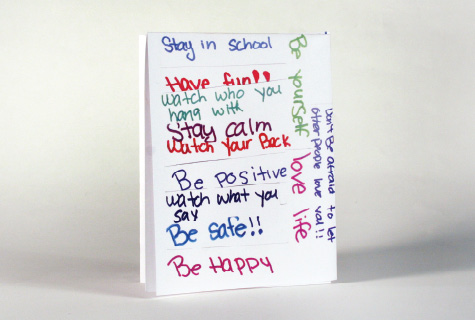 Stay in school
Have fun!!
watch who you
hang with
Stay calm
watch your Back
Be positive
watch what you
say
Be safe!!
Be Happy
Be yourself
love life
Don't Be afraid to let
other people love you!!